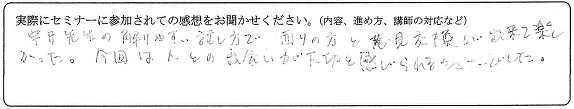 実際にセミナーに参加されての感想をお聞かせください。(内容、進め方、講師の対応など)
先生の解りやすい話し方で周りの方と意見交換が出来て楽し
かった。今回は人との出会いが大切と感じられるセミナーでした。